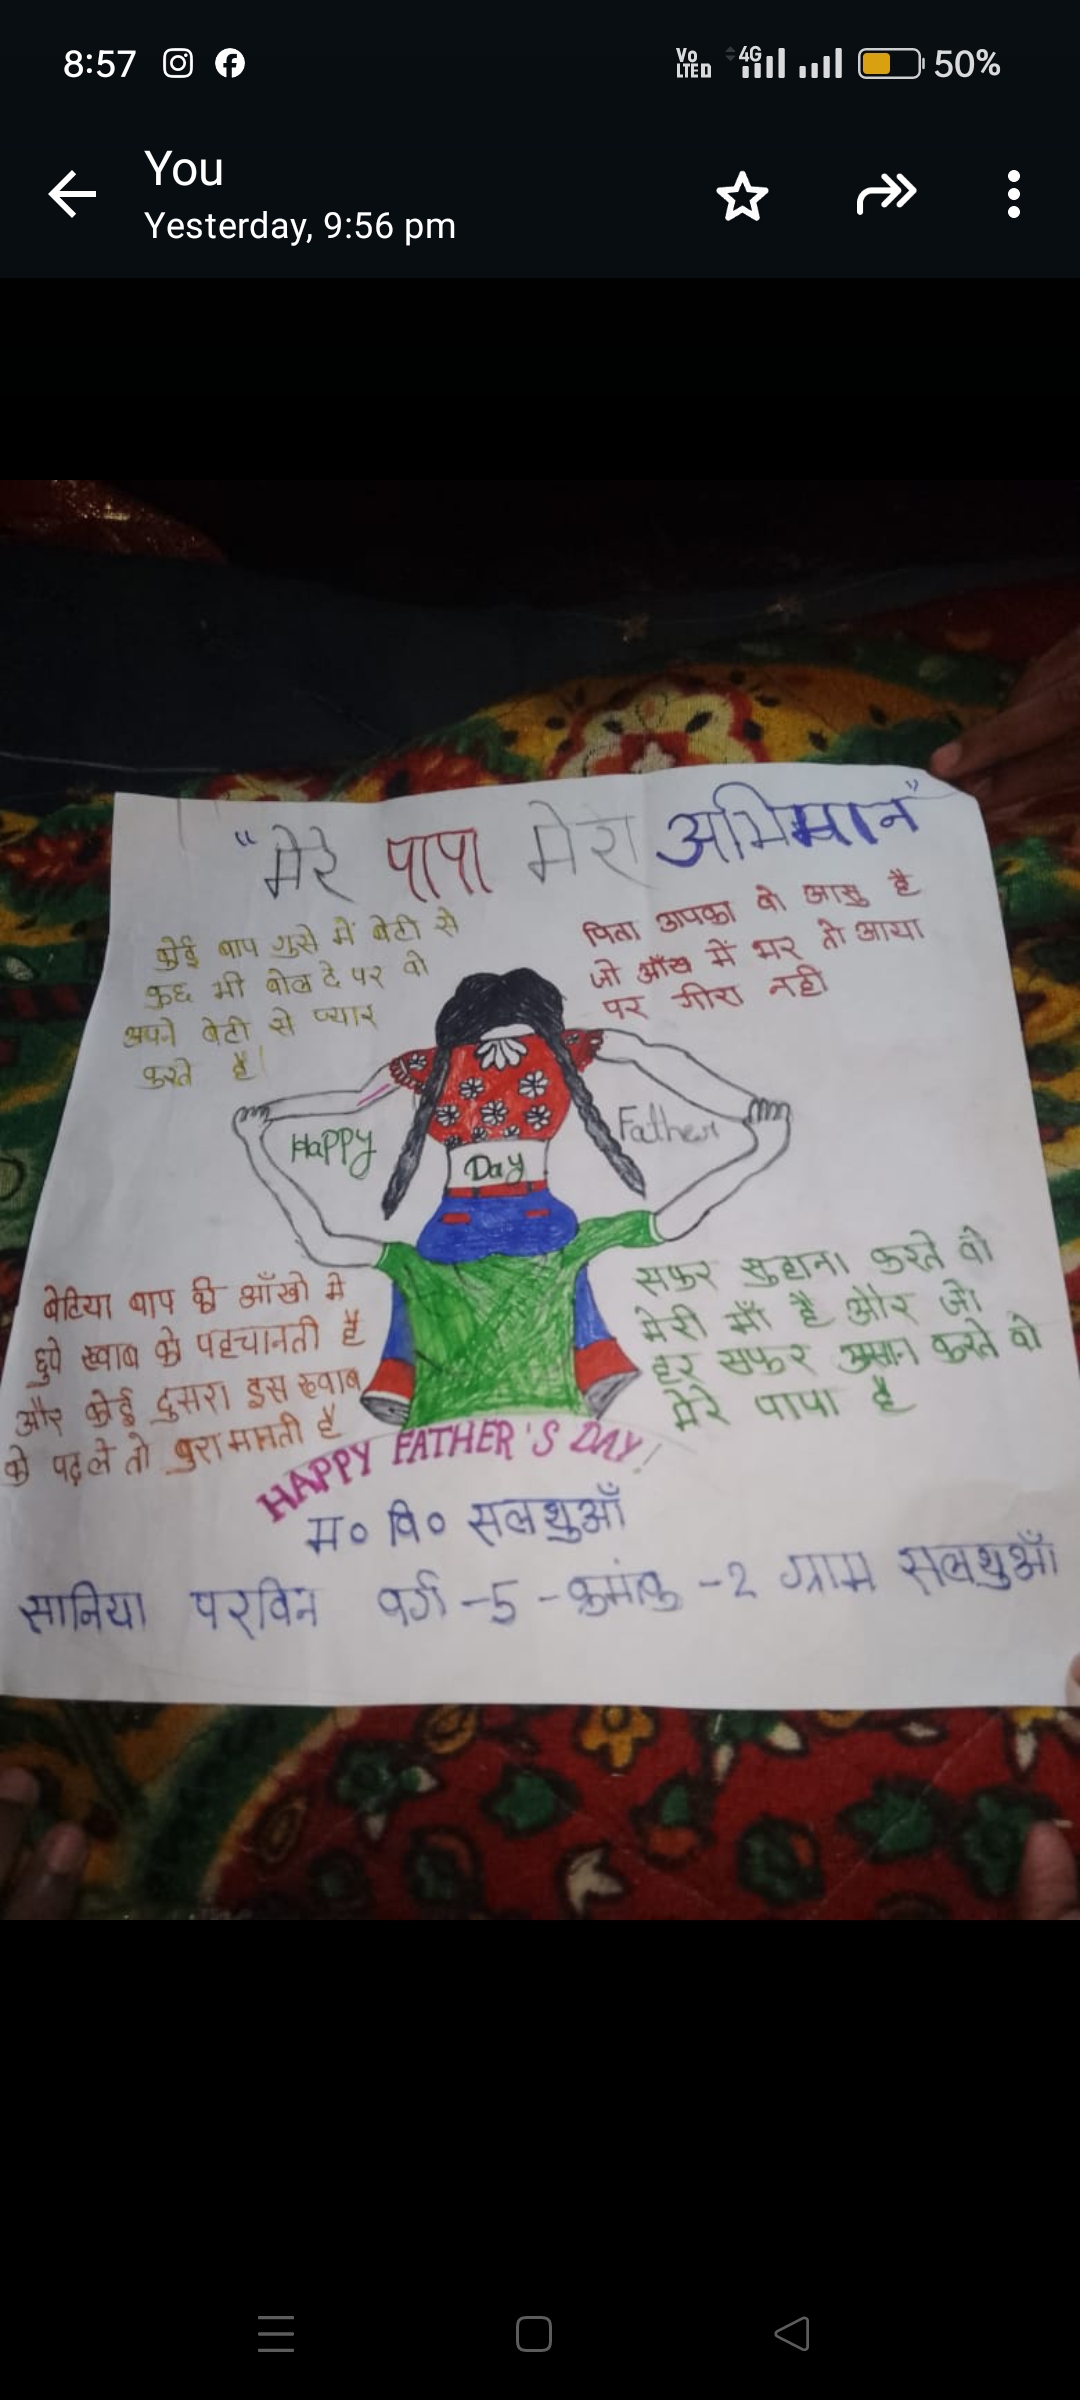 8:57
Vo LTED 4G 50%
You
Yesterday, 9:56 pm
"मेरे पापा मेरा अभिमान"
कोई बाप गुसे में बेटी से
कुछ भी बोल दे पर वो
अपने बेटी से प्यार
करते है।
पिता आपका वो आसु है
जो आँख में भर तो आया
पर गीरा नही
Happy
Father
Day
बेटिया बाप की आँखो मे
छुपे ख्वाब को पहचानती है
और कोई दुसरा इस ख्वाब
को पढ़ ले तो बुरा मानती है
सफर सुहाना करते वो
मेरी माँ है और जो
हर सफर आसान करते वो
मेरे पापा है
HAPPY FATHER'S DAY!
म० वि० सलथुआँ
सानिया परविन वर्ग -5 - क्रमांक -2 ग्राम सलथुआँ